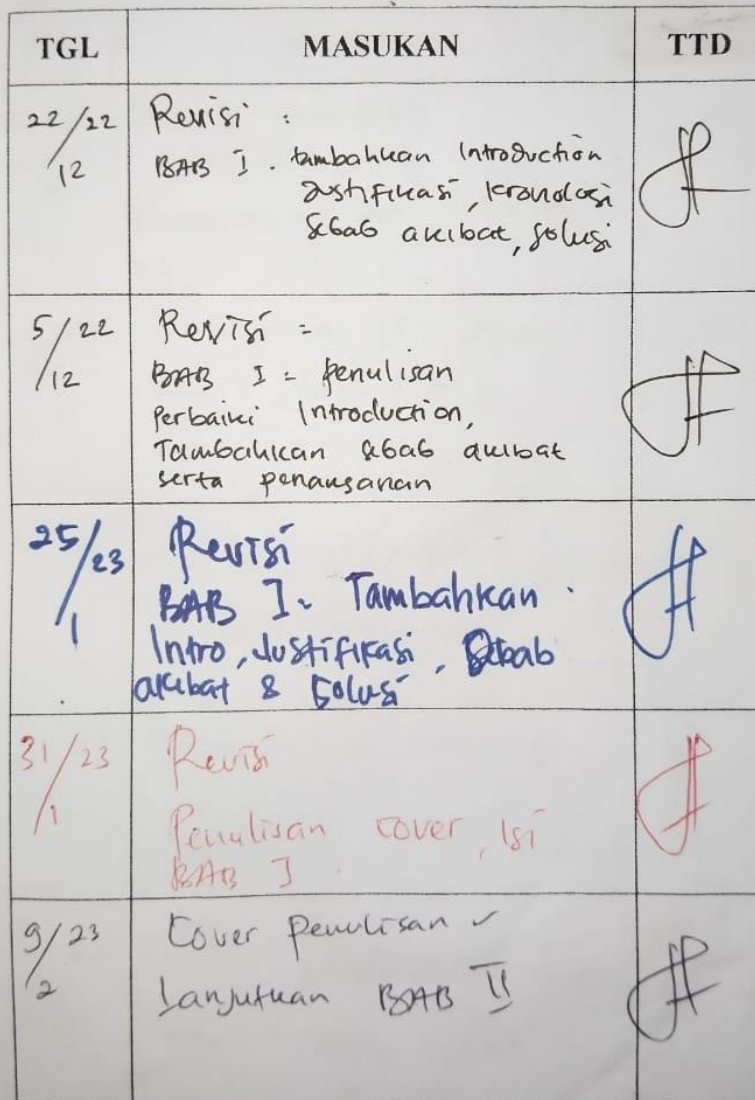 TGL MASUKAN TTD
22/22
12
Revisi :
BAB I . tambahkan Introduction
Justifikasi, kronologi
Sebab akibat, solusi
5/22
12
Revisi =
BAB I = penulisan
Perbaiki Introduction,
Tambahkan sebab akibat
serta penanganan
25/23
1
Revisi
BAB I. Tambahkan
Intro, Justifikasi, Sebab
akibat & Solusi
31/23
1
Revisi
Penulisan cover, isi
BAB I
9/23
2
Cover penulisan ✓
Lanjutkan BAB II